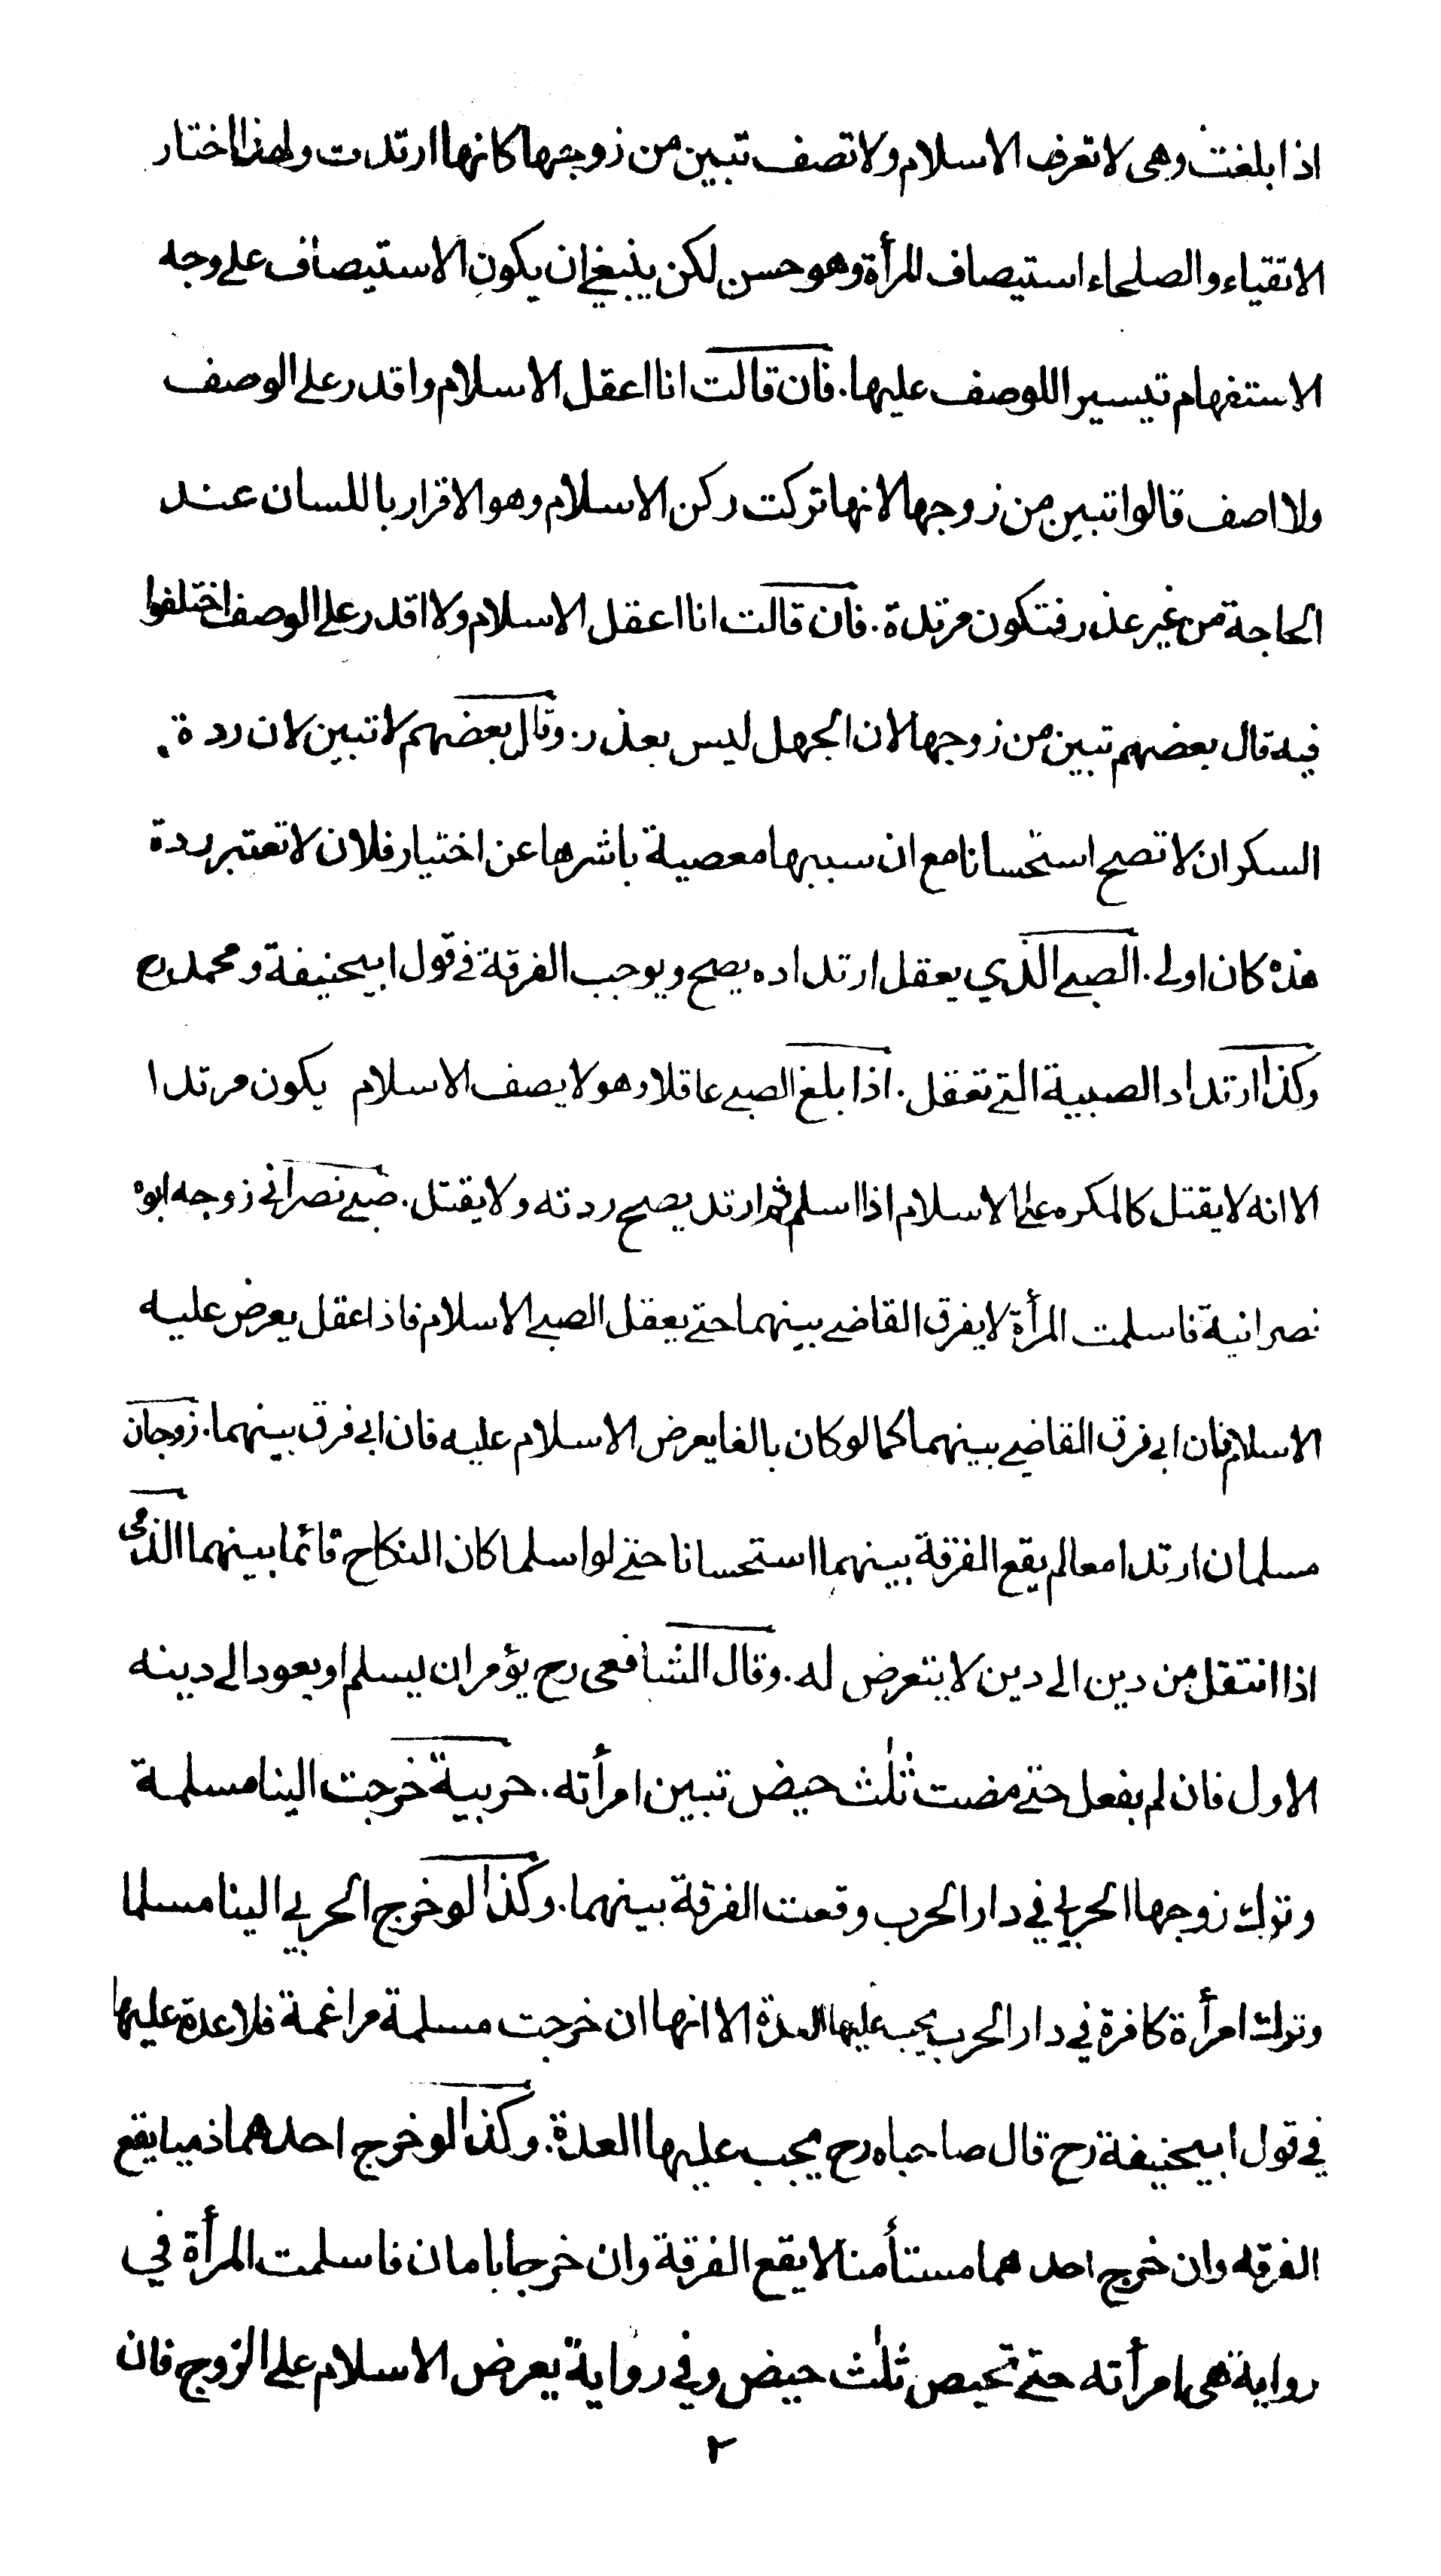 اذا بلغت وهى لا تعرف الاسلام ولا تصف تبين من زوجها كانها ارتدت ولهذا اختار
الاتقياء والصلحاء استيصاف المرأة وهو حسن لكن ينبغي ان يكون الاستيصاف على وجه
الاستفهام تيسيرا للوصف عليها. فان قالت انا اعقل الاسلام واقدر على الوصف
ولا اصف قالوا تبين من زوجها لانها تركت ركن الاسلام وهو الاقرار باللسان عند
الحاجة من غير عذر فتكون مرتدة. فان قالت انا اعقل الاسلام ولا اقدر على الوصف اختلفوا
فيه قال بعضهم تبين من زوجها لان الجهل ليس بعذر. وقال بعضهم لا تبين لان ردة
السكران لا تصح استحسانا مع ان سببها معصية باشرها عن اختيار فلان لا تعتبر ردة
هذه كان اولى. الصبي الذي يعقل ارتداده يصح ويوجب الفرقة في قول ابيحنيفة ومحمد رح
وكذا ارتداد الصبية التي تعقل. اذا بلغ الصبي عاقلا وهو لا يصف الاسلام يكون مرتدا
الا انه لا يقتل كالمكره على الاسلام اذا اسلم ثم ارتد يصح ردته ولا يقتل. صبي نصراني زوجه ابوه
نصرانية فاسلمت المرأة لا يفرق القاضي بينهما حتى يعقل الصبي الاسلام فاذا عقل يعرض عليه
الاسلام فان ابى فرق القاضي بينهما كما لو كان بالغا يعرض الاسلام عليه فان ابى فرق بينهما. زوجان
مسلمان ارتدا معا لم يقع الفرقة بينهما استحسانا حتى لو اسلما كان النكاح قائما بينهما الذمى
اذا انتقل من دين الى دين لا يتعرض له. وقال الشافعى رح يؤمر ان يسلم او يعود الى دينه
الاول فان لم يفعل حتى مضت ثلٰث حيض تبين امرأته. حربية خرجت الينا مسلمة
وتركت زوجها الحربي في دار الحرب وقعت الفرقة بينهما. وكذا لو خرج الحربي الينا مسلما
وترك امرأة كافرة في دار الحرب يجب عليها العدة الا انها ان خرجت مسلمة مراغمة فلا عدة عليها
في قول ابيحنيفة رح قال صاحباه رح يجب عليها العدة. وكذا لو خرج احدهما ذميا يقع
الفرقة وان خرج احدهما مستأمنا لا يقع الفرقة وان خرجا بامان فاسلمت المرأة في
رواية هى امرأته حتى تحيض ثلٰث حيض وفي رواية يعرض الاسلام على الزوج فان
٢